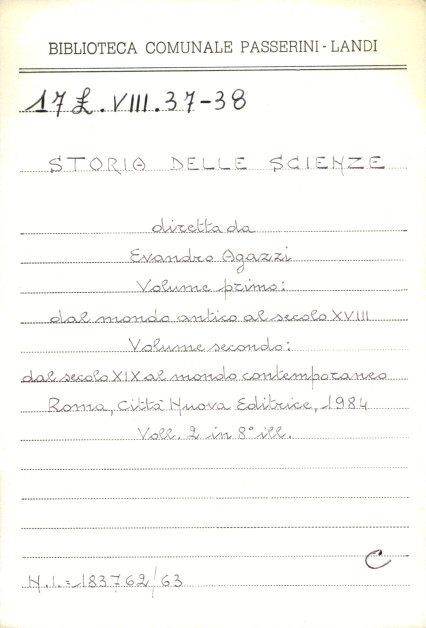 BIBLIOTECA COMUNALE PASSERINI-LANDI
17 £.VIII.37-38
STORIA DELLE SCIENZE
diretta da
Evandro Agazzi
Volume primo:
dal mondo antico al secolo XVIII
Volume secondo:
dal secolo XIX al mondo contemporaneo
Roma, Città Nuova Editrice, 1984
Voll. 2 in 8° ill.
C
N.I.=183762/63